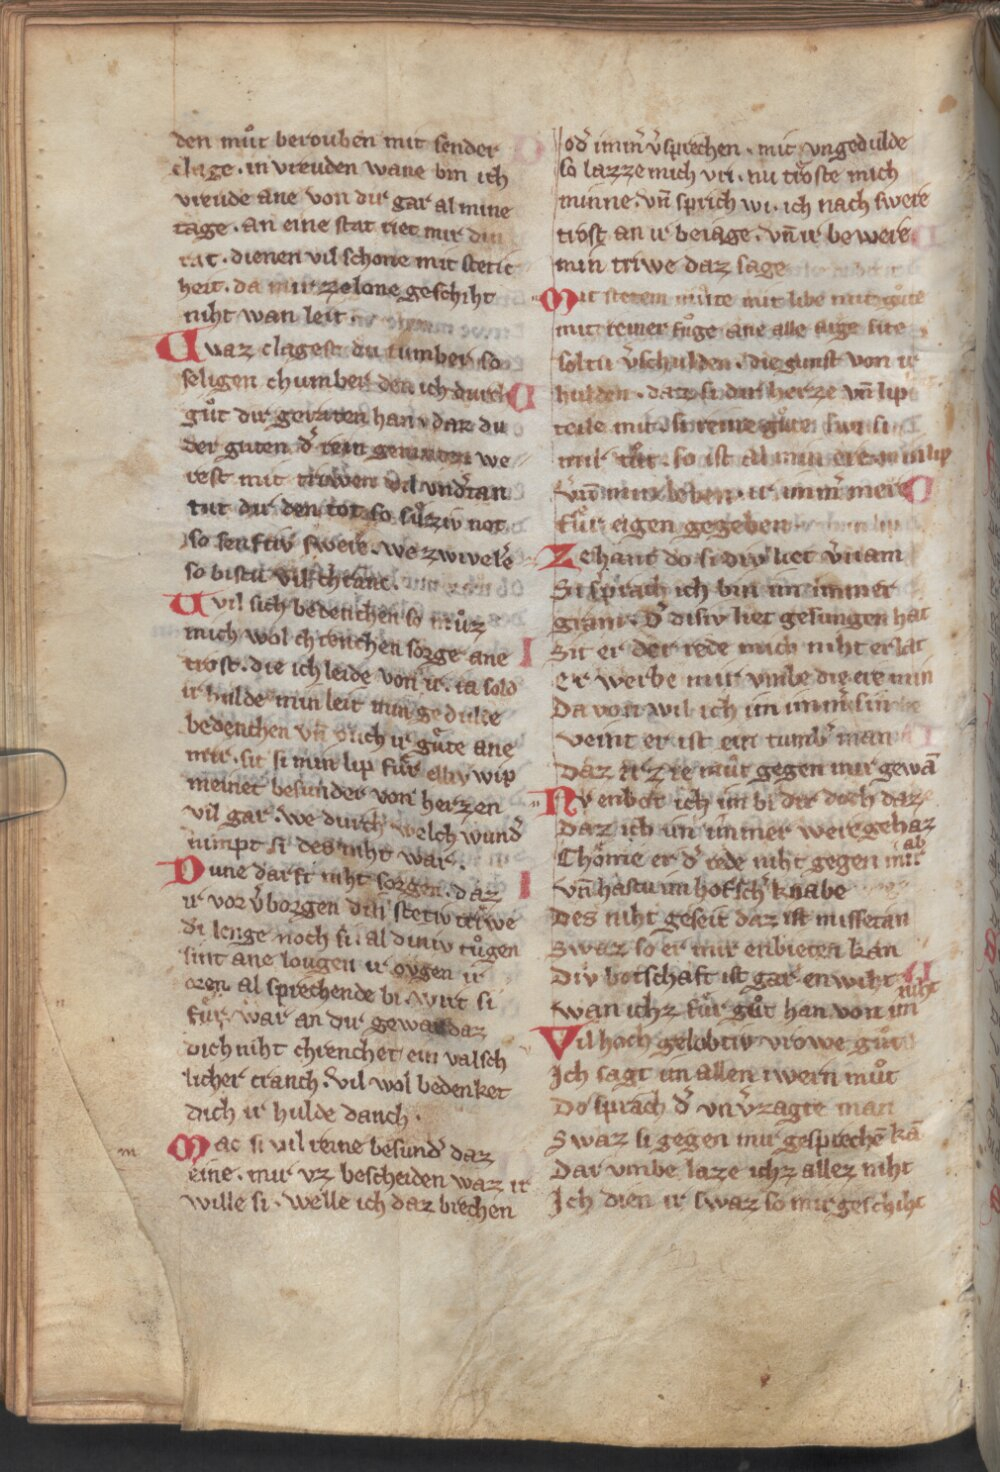 den můt berouben mit sender
clage. in vreuden wane bin ich
vreude ane von dir gar al mine
tage. an eine stat riet mir din
rat. dienen vil schone mit stetic
heit. da mir zelone geschiht
niht wan leit.
Waz clagest du tumber so
seligen chumber den ich durch
gůt dir geraten han. daz du
der guten d̾ rein gemuten we
rest mit triwen vil vnd̾tan
tut dir den tot so sůzziv not
so senftiv swere. we zwivele̾
so bistu vil chranc.
vil sich bedenchen so můz
mich wol chrenchen sorge ane
trost. die ich leide von ir. ia sold
ir hulde min leit min gedulde
bedenchen vn̄ ouch ir gůte ane
mir. sit si min lip fůr elliv wip
meinet besunder von herzen
vil gar. we durch welch wund̾
nimpt si des niht war.
Dune darft niht sorgen. daz
ir vor v̾borgen din stetiv triwe
di lenge noch si. al diniv tǒgen
sint ane lougen ir ovgen ir
oren al sprechende bi. wirt si
fůr war an dir gewar daz
dich niht chrenchet ein valsch
licher cranch. vil wol bedenket
dich ir hulde danch.
Mac si vil reine besund̾ daz
eine. mir vz bescheiden waz ir
wille si. welle ich daz brechen
od̾ imm̾ v̾sprechen. mit vngedulde
so lazze mich vri. nu trǒste mich
minne. vn̄ sprich wi. ich nach swere
trost an ir beiage. vn̄ ir bewere
min triwe daz sage
Mit stetem můte mit libe mit gůte
mit reiner fůge ane alle růge site
soltu v̾schulden. die gunst von ir
hulden. daz si dir herze vn̄ lip
teile mit. si reine gůte swi si
mir tůt. so ist al min ere min lip
vn̄ min leben. ir imm̾ mere
fůr eigen gegeben
Zehant do si div liet v̾nam
Si sprach ich bin im immer
gram. d̾ disiv liet gesungen hat
Sit er der rede mich niht erlat
Er werbe mir vmbe die ere min
Da von wil ich im imm̾ sin
veint er ist ein tumb̾ man
Daz er ie můt gegen mir gewā
Nv enbot ich im bi dir doch daz
Daz ich im immer were gehaz
Chǒme er d̾ rede niht gegen mir ab
vn̄ hastu im hofsch̾ knabe
Des niht geseit daz ist missetan
Swaz so er mir enbieten kan
Div botschaft ist gar enwiht
wan ichz fůr gůt han von im niht
Vil hoch gelobtiv vrowe gůt
Ich sagt im allen iwern můt
Do sprach d̾ vnv̾zagte man
Swaz si gegen mir gesprechē kā
Dar vmbe laze ichz allez niht
Ich dien ir swaz so mir geschiht